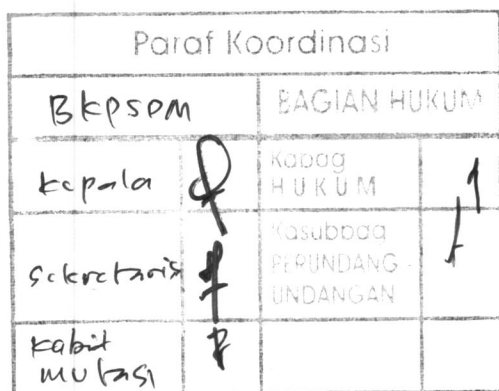 Paraf Koordinasi
BKPSDM
BAGIAN HUKUM
Kepala
Kabag
HUKUM
Sekretaris
Kasubbag
PERUNDANG -
UNDANGAN
Kabid
mutasi